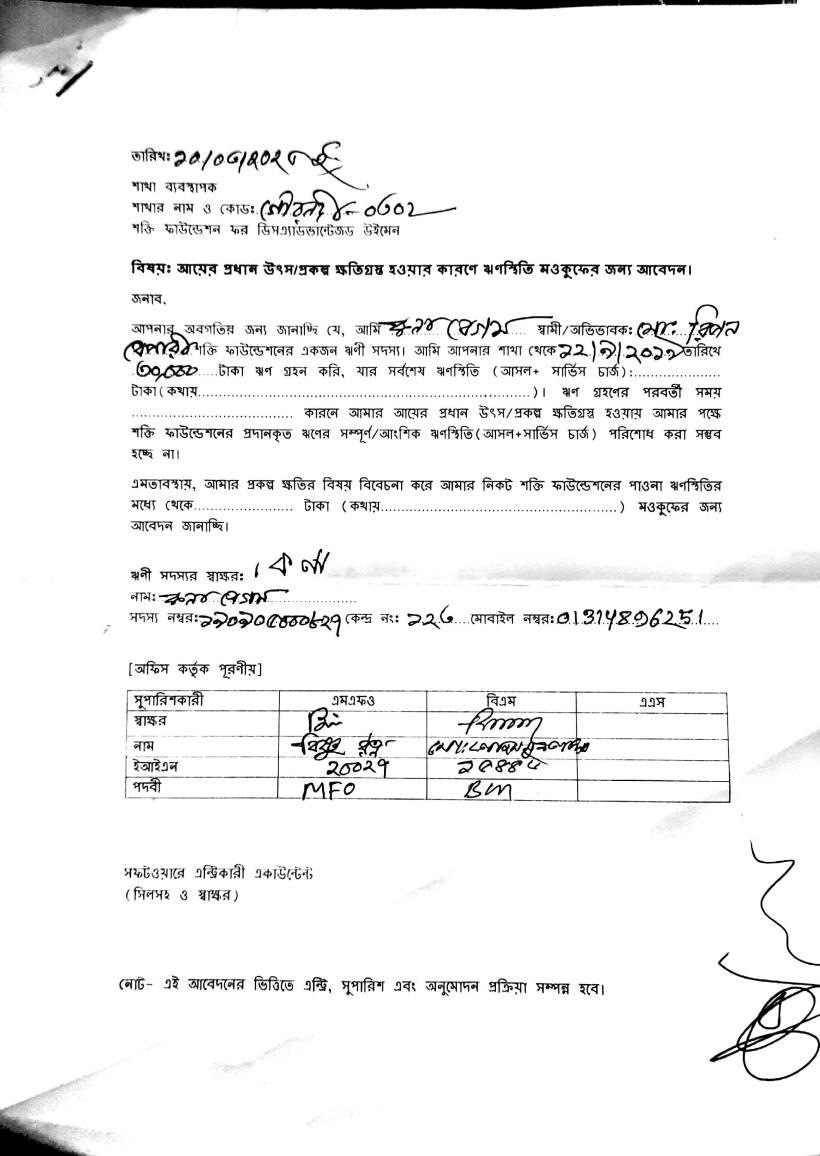 তারিখঃ ২০/০৩/২০২
শাখা ব্যবস্থাপক
শাখার নাম ও কোডঃ গৌরনদী - ০৩০২
শক্তি ফাউন্ডেশন ফর ডিসএ্যাডভান্টেজড উইমেন
বিষয়ঃ আয়ের প্রধান উৎস/প্রকল্প ক্ষতিগ্রস্থ হওয়ার কারণে ঋণস্থিতি মওকুফের জন্য আবেদন।
জনাব,
আপনার অবগতির জন্য জানাচ্ছি যে, আমি বেগম স্বামী/অভিভাবক: মোঃ
শক্তি ফাউন্ডেশনের একজন ঋণী সদস্য। আমি আপনার শাখা থেকে তারিখে
৩০,০০০ টাকা ঋণ গ্রহন করি, যার সর্বশেষ ঋণস্থিতি (আসল+ সার্ভিস চার্জ):......................
টাকা(কথায়................................................................)। ঋণ গ্রহণের পরবর্তী সময়
.............................. কারনে আমার আয়ের প্রধান উৎস/প্রকল্প ক্ষতিগ্রস্থ হওয়ায় আমার পক্ষে
শক্তি ফাউন্ডেশনের প্রদানকৃত ঋণের সম্পূর্ণ/আংশিক ঋণস্থিতি(আসল+সার্ভিস চার্জ) পরিশোধ করা সম্ভব
হচ্ছে না।
এমতাবস্থায়, আমার প্রকল্প ক্ষতির বিষয় বিবেচনা করে আমার নিকট শক্তি ফাউন্ডেশনের পাওনা ঋণস্থিতির
মধ্যে (থেকে....................... টাকা (কথায়......................................................) মওকুফের জন্য
আবেদন জানাচ্ছি।
ঋণী সদস্যর স্বাক্ষর:
নাম: বেগম
সদস্য নম্বর: কেন্দ্র নং: মোবাইল নম্বর: 01314896251
[অফিস কর্তৃক পূরণীয়]
সুপারিশকারী এমএফও বিএম এএস
স্বাক্ষর
নাম
ইআইএন ২০০২৭
পদবী MFO BM
সফটওয়ারে এন্ট্রিকারী একাউন্টেন্ট
(সিলসহ ও স্বাক্ষর)
নোট- এই আবেদনের ভিত্তিতে এন্ট্রি, সুপারিশ এবং অনুমোদন প্রক্রিয়া সম্পন্ন হবে।